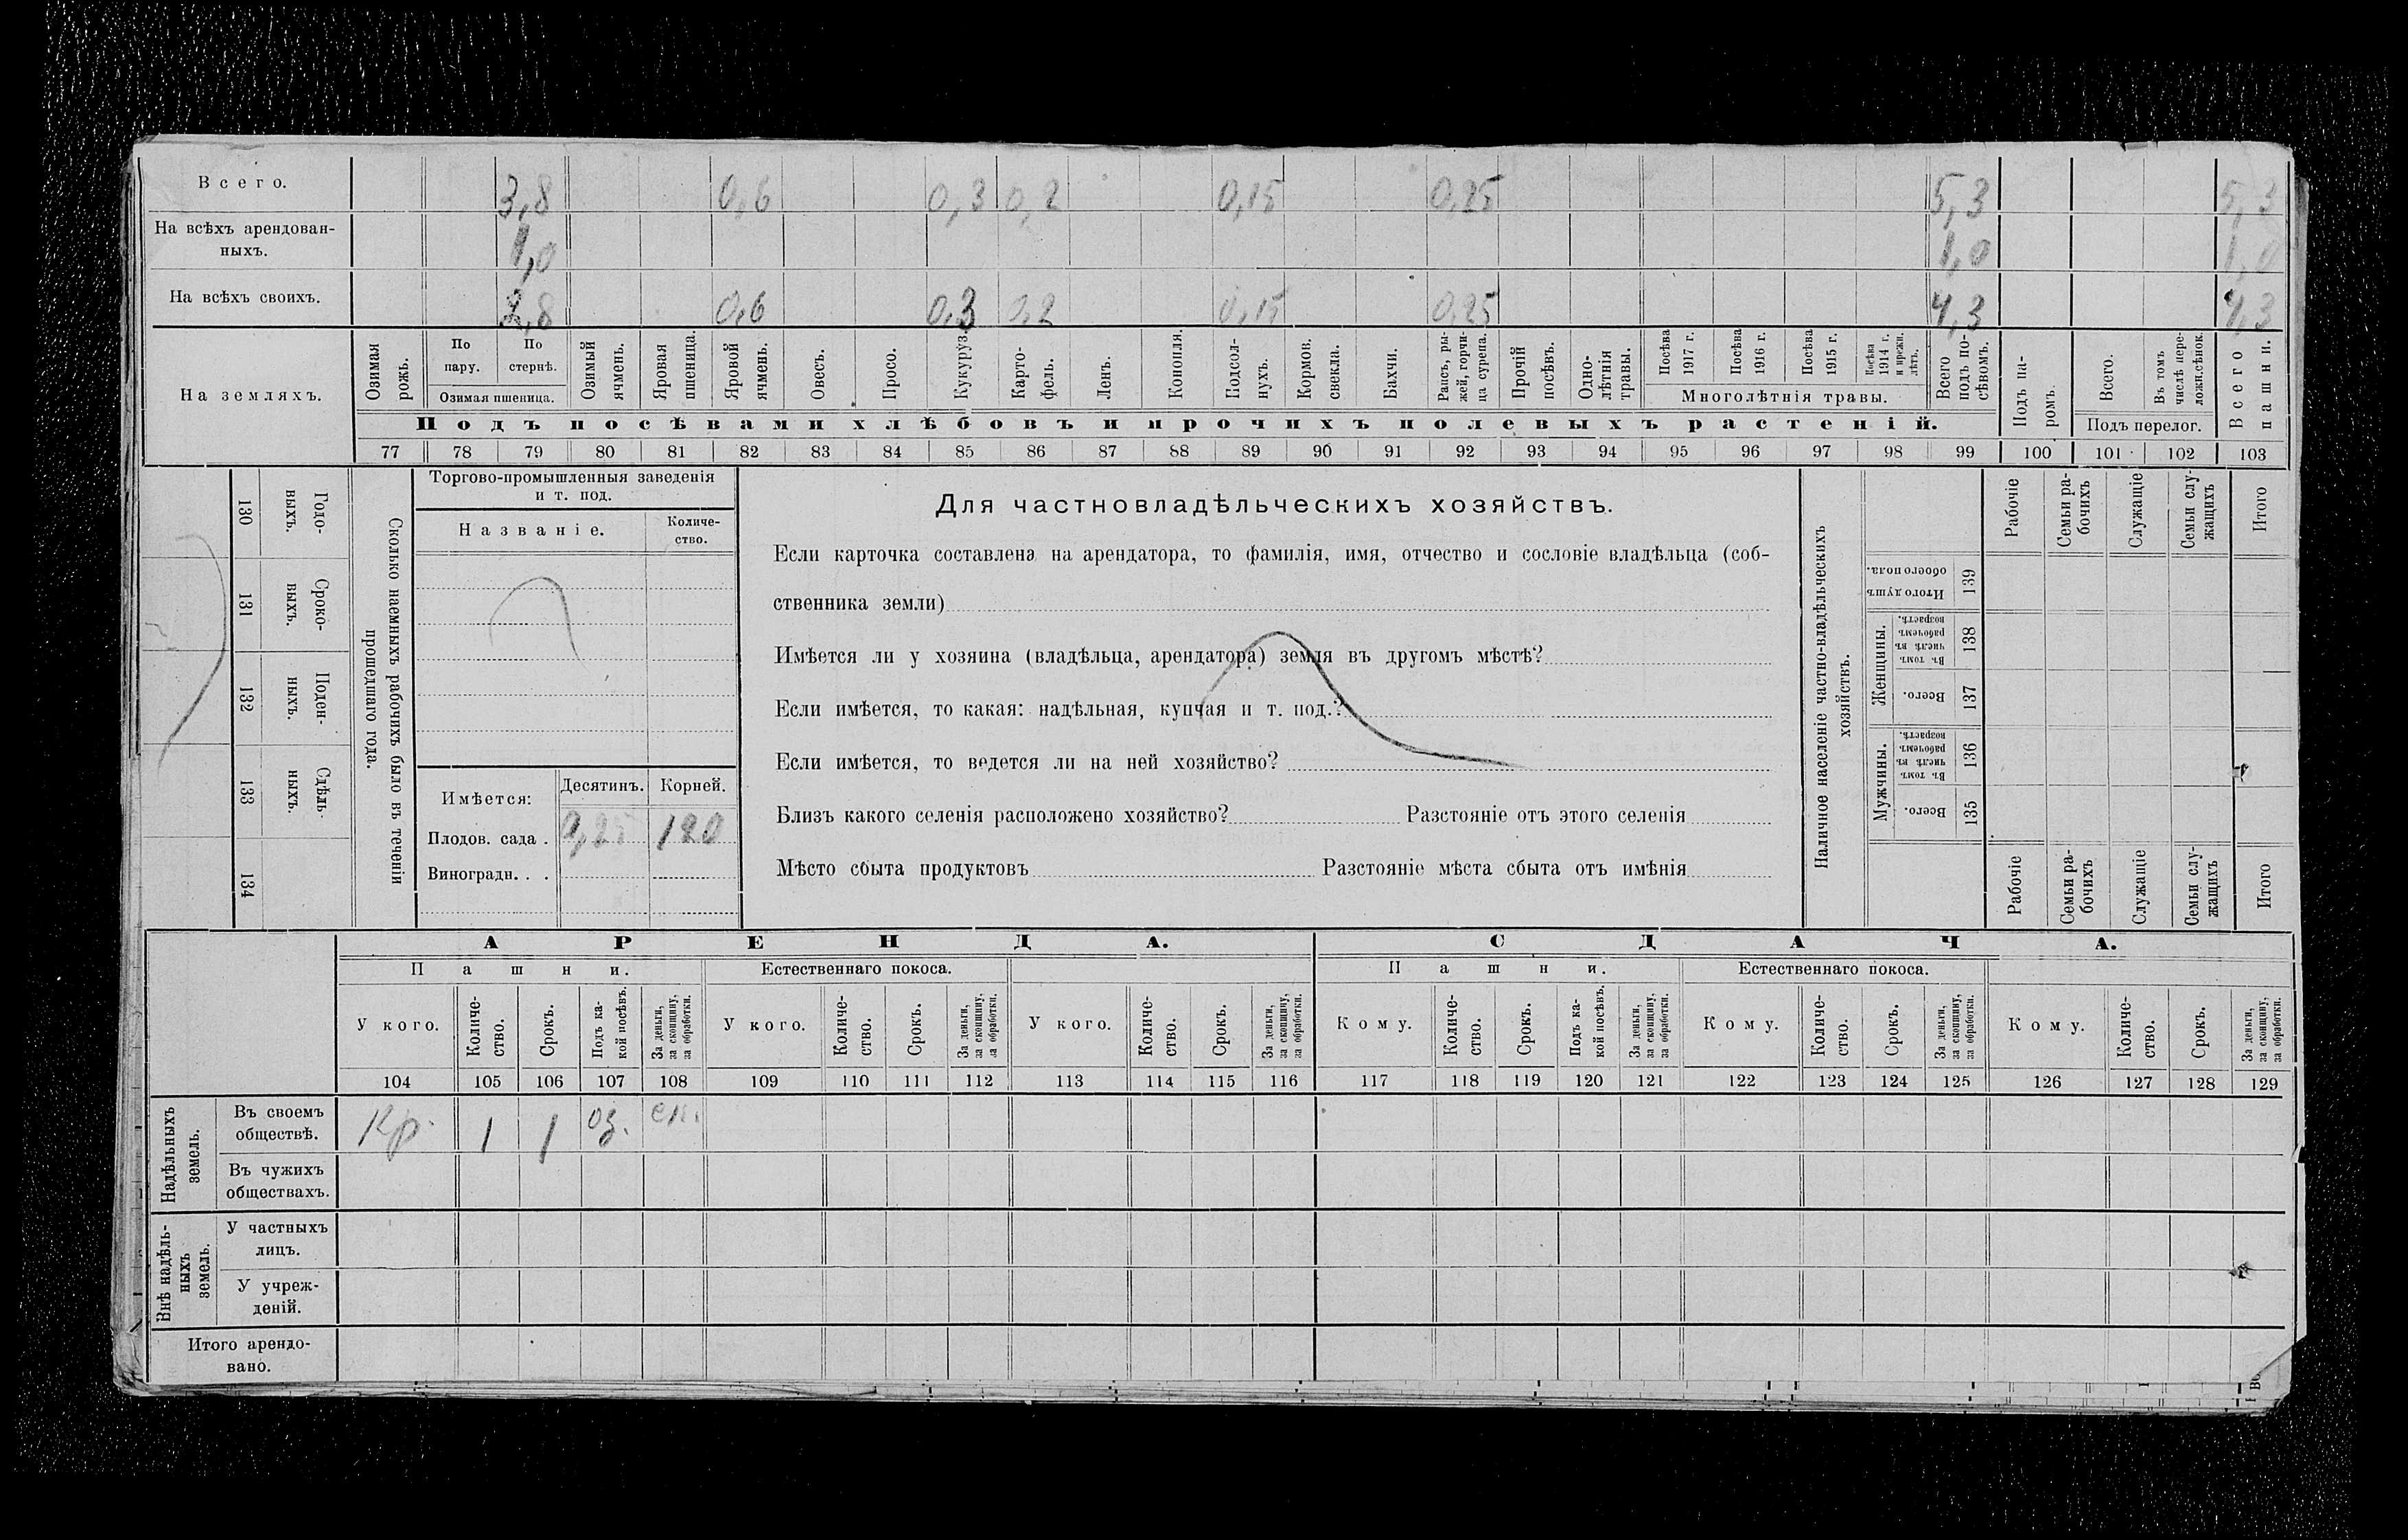 Всего. 3,8 0,6 0,3 0,2 0,15 0,25 5,3 5,3
На всѣхъ арендован-
ныхъ. 1,0 1,0 1,0
На всѣхъ своихъ. 2,8 0,6 0,3 0,2 0,15 0,25 4,3 4,3
На земляхъ.
Озимая рожь.
По пару.
По стернѣ.
Озимая пшеница.
Озимый ячмень.
Яровая пшеница.
Яровой ячмень.
Овесъ.
Просо.
Кукуруз.
Карто-
фель.
Ленъ.
Конопля.
Подсол-
нухъ.
Кормов.
свекла.
Бахчи.
Рапсъ, ры-
жей, горчи-
ца сурепа.
Прочій посѣвъ.
Одно-
лѣтнія травы.
Посѣва 1917 г.
Посѣва 1916 г.
Посѣва 1915 г.
Посѣва 1914 г. и прежн. лѣтъ.
Многолѣтнія травы.
Всего подъ по-
сѣвомъ.
Подъ па-
ромъ.
Всего.
Въ томъ числѣ пере-
ложн.сѣнок.
Подъ перелог.
Всего пашни.
Подъ посѣвами хлѣбовъ и прочихъ полевыхъ растеній.
77 78 79 80 81 82 83 84 85 86 87 88 89 90 91 92 93 94 95 96 97 98 99 100 101 102 103
130 Годо-
выхъ.
131 Сроко-
выхъ.
132 Поден-
ныхъ.
133 Сдѣль-
ныхъ.
134
Сколько наемныхъ рабочихъ было въ теченіи
прошедшаго года.
Торгово-промышленныя заведенія
и т. под.
Названіе.
Количе-
ство.
Имѣется: Десятинъ. Корней.
Плодов. сада . 0,25 120
Виноградн. . .
Для частновладѣльческихъ хозяйствъ.
Если карточка составлена на арендатора, то фамилія, имя, отчество и сословіе владѣльца (соб-
ственника земли)
Имѣется ли у хозяина (владѣльца, арендатора) земля въ другомъ мѣстѣ?
Если имѣется, то какая: надѣльная, купчая и т. под.?
Если имѣется, то ведется ли на ней хозяйство?
Близъ какого селенія расположено хозяйство? Разстояніе отъ этого селенія
Мѣсто сбыта продуктовъ Разстояніе мѣста сбыта отъ имѣнія
Наличное населеніе частно-владѣльческихъ
хозяйствъ.
Рабочіе
Семьи ра-
бочихъ
Служащіе
Семьи слу-
жащихъ
Итого
Итого душъ обоего пола. 139
Женщины.
Въ томъ числѣ въ рабочемъ возрастѣ. 138
Всего. 137
Мужчины.
Въ томъ числѣ въ рабочемъ возрастѣ. 136
Всего. 135
Рабочіе
Семьи ра-
бочихъ
Служащіе
Семьи слу-
жащихъ
Итого
АРЕНДА. СДАЧА.
Пашни. Естественнаго покоса. Пашни. Естественнаго покоса.
У кого.
Количе-
ство.
Срокъ.
Подъ ка-
кой посѣвъ.
За деньги,
за скопщину,
за обработки.
У кого.
Количе-
ство.
Срокъ.
За деньги,
за скопщину,
за обработки.
У кого.
Количе-
ство.
Срокъ.
За деньги,
за скопщину,
за обработки.
Кому.
Количе-
ство.
Срокъ.
Подъ ка-
кой посѣвъ.
За деньги,
за скопщину,
за обработки.
Кому.
Количе-
ство.
Срокъ.
За деньги,
за скопщину,
за обработки.
Кому.
Количе-
ство.
Срокъ.
За деньги,
за скопщину,
за обработки.
104 105 106 107 108 109 110 111 112 113 114 115 116 117 118 119 120 121 122 123 124 125 126 127 128 129
Надѣльныхъ
земель.
Въ своемъ
обществѣ. Кр. 1 1 оз. ск.
Въ чужихъ
обществахъ.
Внѣ надѣль-
ныхъ
земель.
У частныхъ
лицъ.
У учреж-
деній.
Итого арендо-
вано.